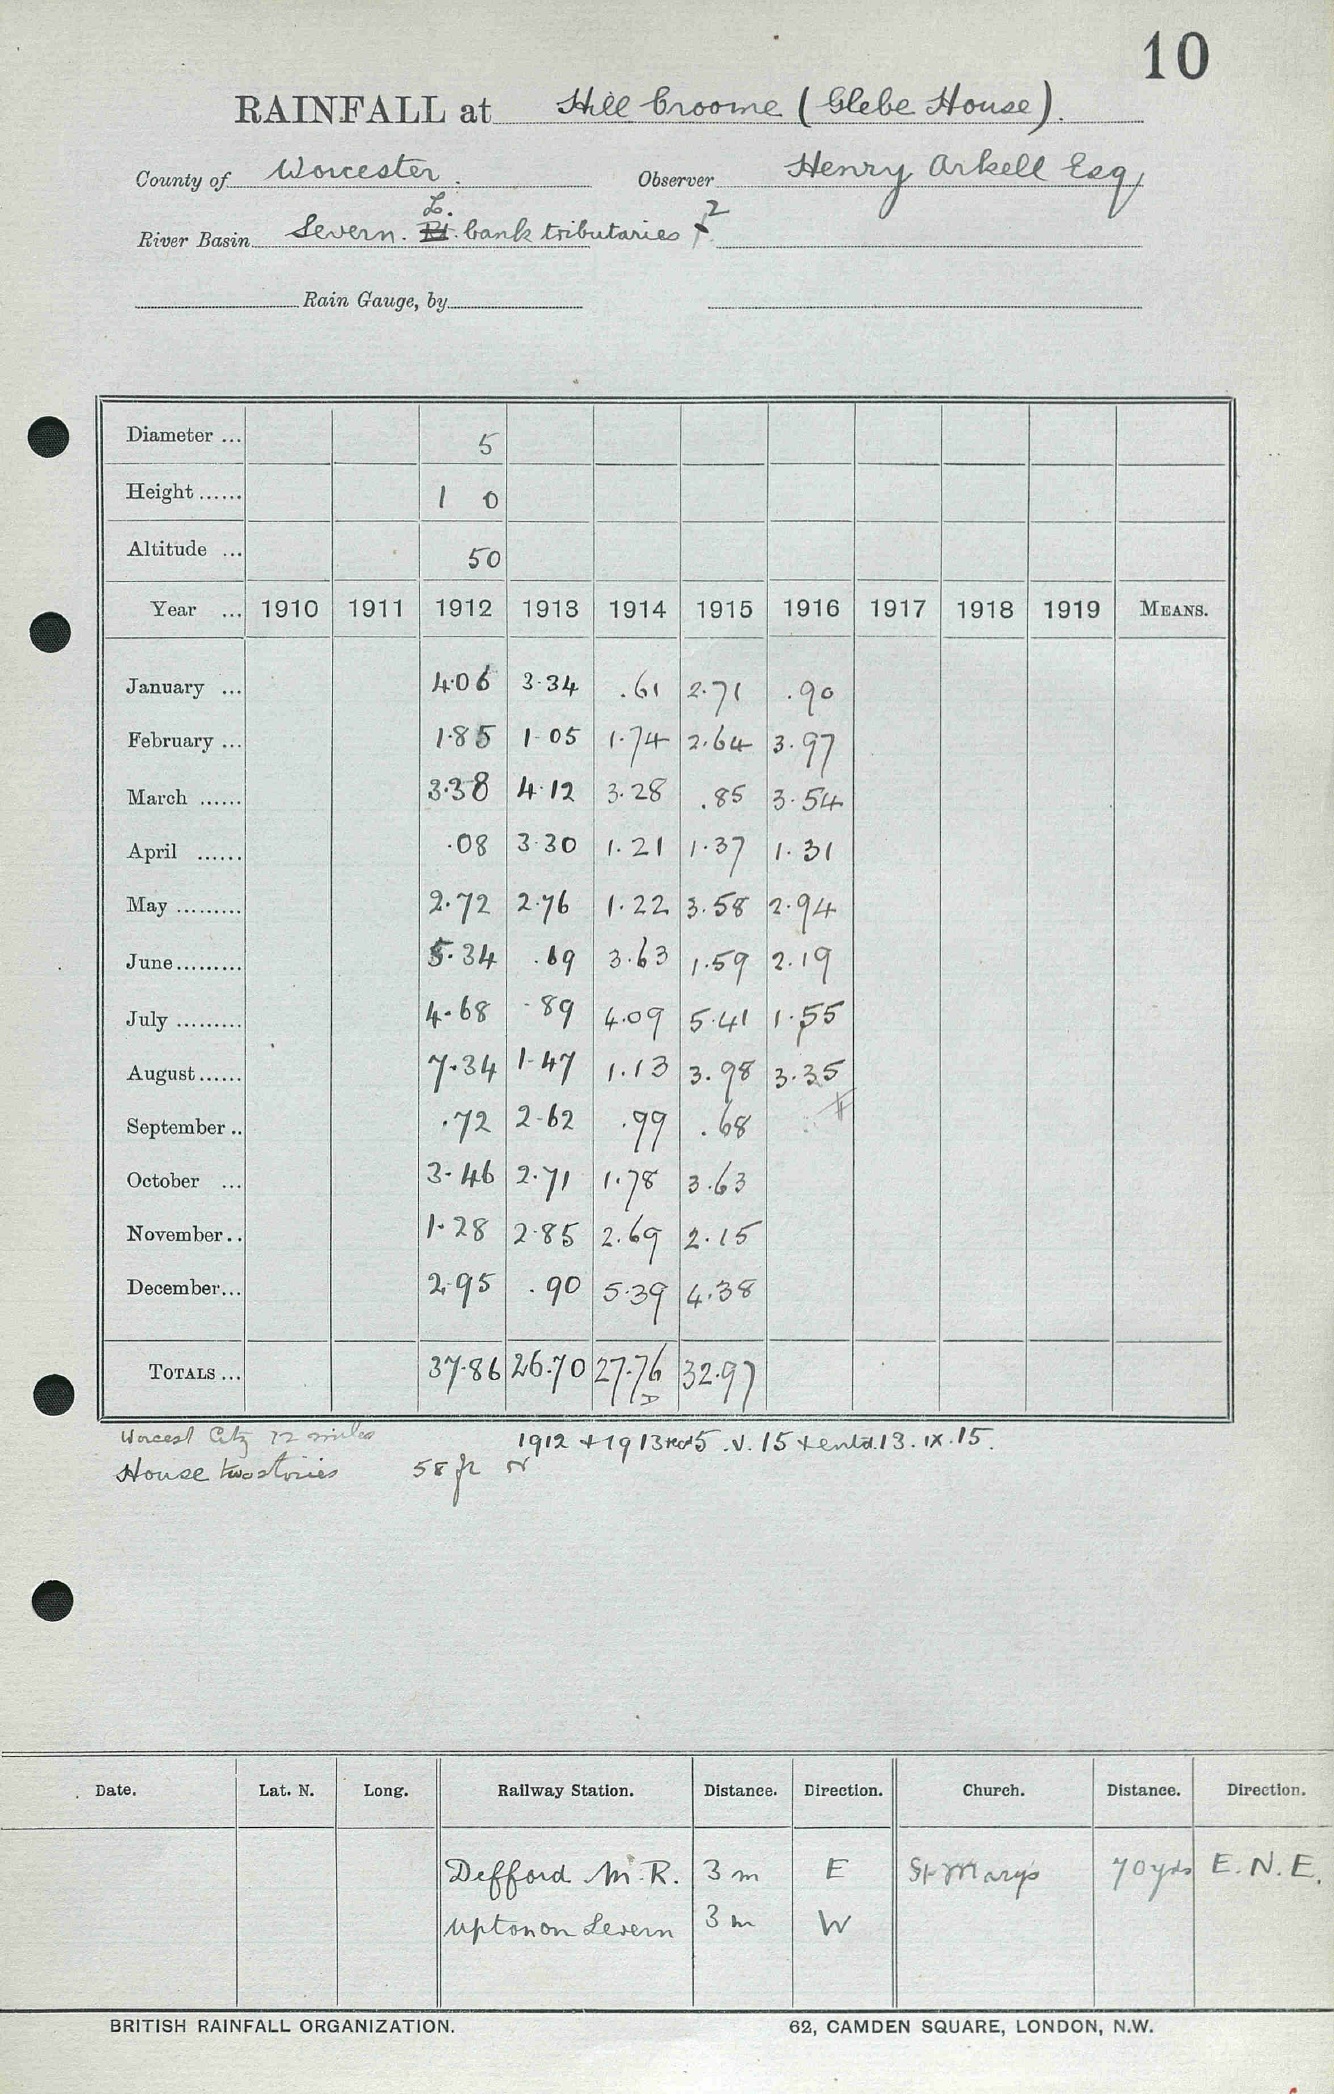 10
RAINFALL at Hill Croome (Glebe House).
County of Worcester. Observer Henry Arkell Esq
L. 2
River Basin Severn. Rt. bank tributaries
Rain Gauge, by
Diameter ... 5
Height ...... 1 0
Altitude ... 50
Year ... 1910 1911 1912 1913 1914 1915 1916 1917 1918 1919 MEANS.
January ... 4.06 3.34 .61 2.71 .90
February ... 1.85 1.05 1.74 2.64 3.97
March ...... 3.38 4.12 3.28 .85 3.54
April ...... .08 3.30 1.21 1.37 1.31
May ......... 2.72 2.76 1.22 3.58 2.94
June ......... 5.34 .69 3.63 1.59 2.19
July ......... 4.68 .89 4.09 5.41 1.55
August ...... 7.34 1.47 1.13 3.98 3.35
September .. .72 2.62 .99 .68
October ... 3.46 2.71 1.78 3.63
November .. 1.28 2.85 2.69 2.15
December ... 2.95 .90 5.39 4.38
TOTALS ... 37.86 26.70 27.76 32.97
D
Worcest City 12 miles 1912 + 1913 recd 5.V.15 + entd. 13.IX.15.
House two stories 58 ft
Date. Lat. N. Long. Railway Station. Distance. Direction. Church. Distance. Direction.
Defford M.R. 3 m E St Marys 70 yds E.N.E.
Upton on Severn 3 m W
BRITISH RAINFALL ORGANIZATION. 62, CAMDEN SQUARE, LONDON, N.W.